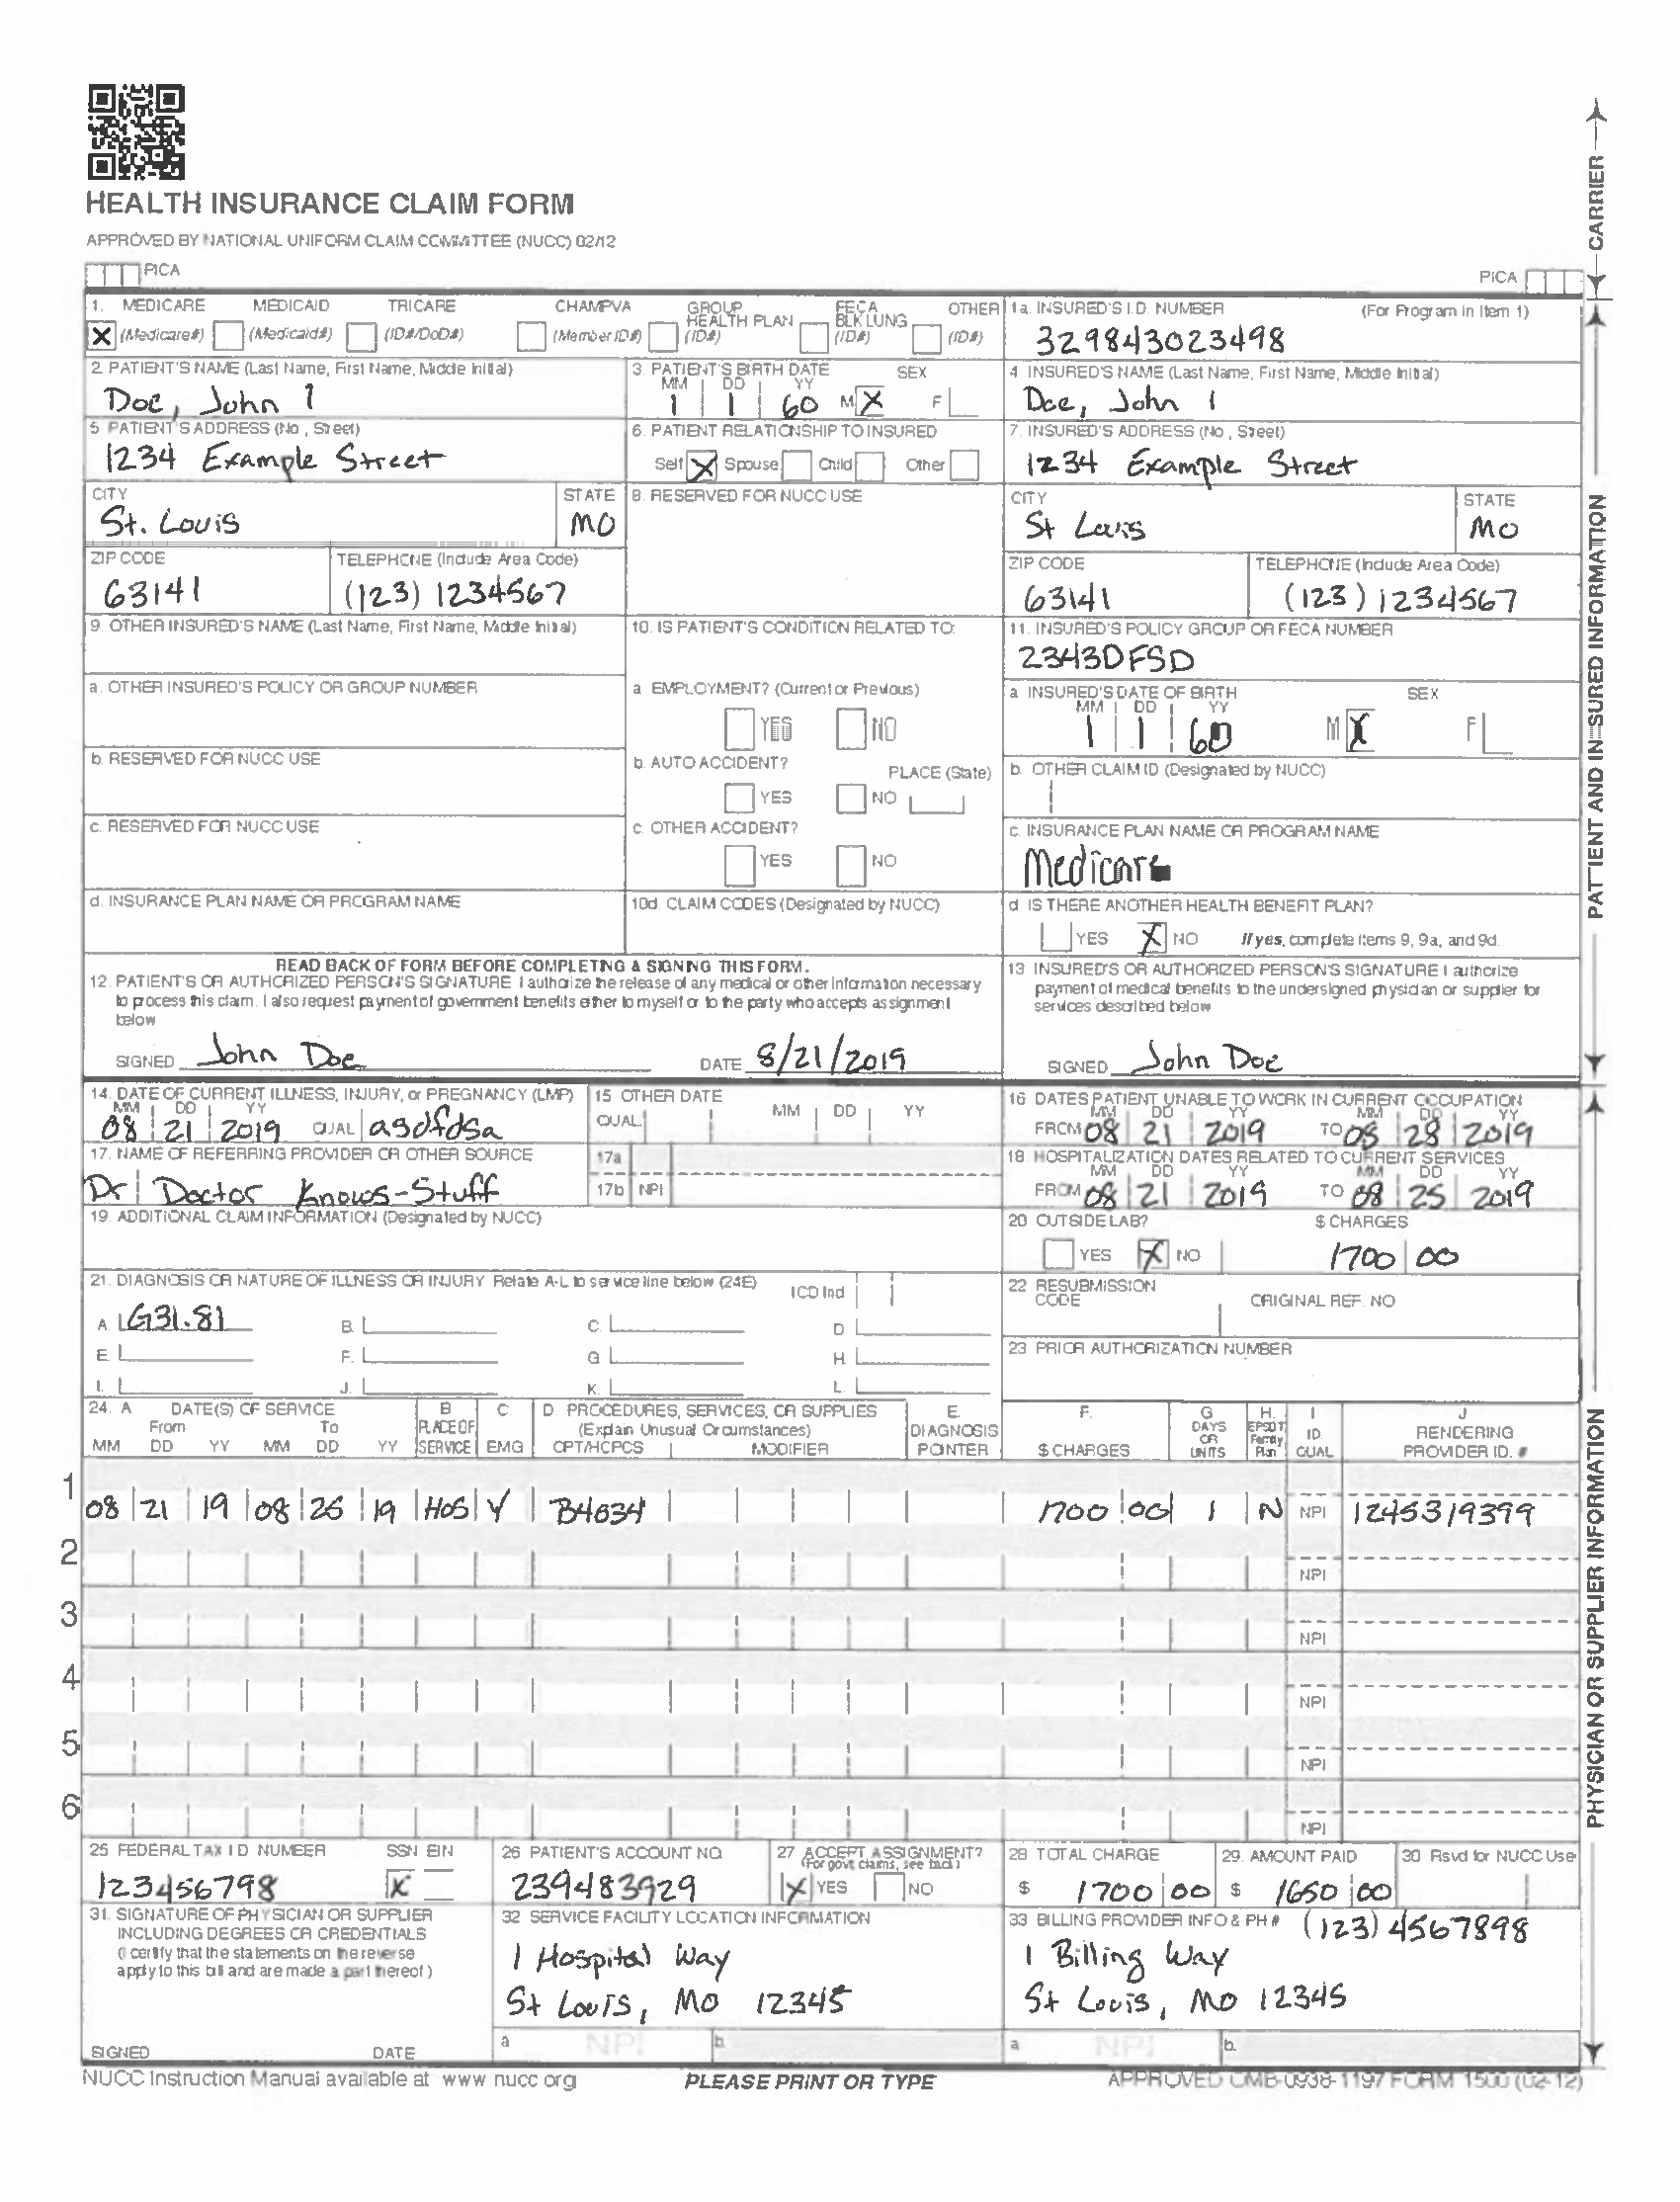 HEALTH INSURANCE CLAIM FORM
APPROVED BY NATIONAL UNIFORM CLAIM COMMITTEE (NUCC) 02/12
PICA
PICA
CARRIER
1. MEDICARE MEDICAID TRICARE CHAMPVA GROUP HEALTH PLAN FECA BLK LUNG OTHER
X (Medicare#) (Medicaid#) (ID#/DoD#) (Member ID#) (ID#) (ID#) (ID#)
1a. INSURED'S I.D. NUMBER (For Program in Item 1)
329843023498
2. PATIENT'S NAME (Last Name, First Name, Middle Initial)
Doe, John I
3. PATIENT'S BIRTH DATE SEX
MM DD YY
1 1 60 M X F
4 INSURED'S NAME (Last Name, First Name, Middle Initial)
Doe, John I
5 PATIENT'S ADDRESS (No., Street)
1234 Example Street
6. PATIENT RELATIONSHIP TO INSURED
Self X Spouse Child Other
7. INSURED'S ADDRESS (No., Street)
1234 Example Street
CITY STATE
St. Louis MO
8. RESERVED FOR NUCC USE
CITY STATE
St Louis MO
ZIP CODE TELEPHONE (Include Area Code)
63141 (123) 1234567
ZIP CODE TELEPHONE (Include Area Code)
63141 (123) 1234567
9. OTHER INSURED'S NAME (Last Name, First Name, Middle Initial)
10. IS PATIENT'S CONDITION RELATED TO:
11. INSURED'S POLICY GROUP OR FECA NUMBER
2343DFSD
a. OTHER INSURED'S POLICY OR GROUP NUMBER
a EMPLOYMENT? (Current or Previous)
YES NO
a INSURED'S DATE OF BIRTH SEX
MM DD YY
1 1 60 M X F
b. RESERVED FOR NUCC USE
b. AUTO ACCIDENT? PLACE (State)
YES NO
b. OTHER CLAIM ID (Designated by NUCC)
c. RESERVED FOR NUCC USE
c. OTHER ACCIDENT?
YES NO
c. INSURANCE PLAN NAME OR PROGRAM NAME
Medicare
d. INSURANCE PLAN NAME OR PROGRAM NAME
10d. CLAIM CODES (Designated by NUCC)
d IS THERE ANOTHER HEALTH BENEFIT PLAN?
YES X NO If yes, complete items 9, 9a, and 9d.
PATIENT AND INSURED INFORMATION
READ BACK OF FORM BEFORE COMPLETING & SIGNING THIS FORM.
12. PATIENT'S OR AUTHORIZED PERSON'S SIGNATURE I authorize the release of any medical or other information necessary
to process this claim. I also request payment of government benefits either to myself or to the party who accepts assignment
below
SIGNED John Doe DATE 8/21/2019
13 INSURED'S OR AUTHORIZED PERSON'S SIGNATURE I authorize
payment of medical benefits to the undersigned physician or supplier for
services described below
SIGNED John Doe
14. DATE OF CURRENT ILLNESS, INJURY, or PREGNANCY (LMP)
MM DD YY
08 21 2019 QUAL asdfdsa
15 OTHER DATE
QUAL MM DD YY
16 DATES PATIENT UNABLE TO WORK IN CURRENT OCCUPATION
MM DD YY MM DD YY
FROM 08 21 2019 TO 08 28 2019
17. NAME OF REFERRING PROVIDER OR OTHER SOURCE
Dr Doctor Knows-Stuff
17a
17b NPI
18 HOSPITALIZATION DATES RELATED TO CURRENT SERVICES
MM DD YY MM DD YY
FROM 08 21 2019 TO 08 25 2019
19. ADDITIONAL CLAIM INFORMATION (Designated by NUCC)
20 OUTSIDE LAB? $ CHARGES
YES X NO 1700 00
21. DIAGNOSIS OR NATURE OF ILLNESS OR INJURY Relate A-L to service line below (24E) ICD Ind
A. G31.81 B. C. D
E. F. G H.
I. J. K. L.
22 RESUBMISSION CODE ORIGINAL REF. NO
23 PRIOR AUTHORIZATION NUMBER
24. A DATE(S) OF SERVICE B C. D. PROCEDURES, SERVICES, OR SUPPLIES E. F. G H. I J
From To PLACE OF (Explain Unusual Circumstances) DIAGNOSIS DAYS OR EPSDT Family ID. RENDERING
MM DD YY MM DD YY SERVICE EMG CPT/HCPCS MODIFIER POINTER $ CHARGES UNITS Plan QUAL PROVIDER ID. #
1 08 21 19 08 25 19 HOS Y B4034 1700 00 1 N NPI 1245319399
2 NPI
3 NPI
4 NPI
5 NPI
6 NPI
PHYSICIAN OR SUPPLIER INFORMATION
25 FEDERAL TAX I D NUMBER SSN EIN
123456798 X
26 PATIENT'S ACCOUNT NO.
239483929
27 ACCEPT ASSIGNMENT?
(For govt. claims, see back)
X YES NO
28 TOTAL CHARGE
$ 1700 00
29. AMOUNT PAID
$ 1650 00
30 Rsvd for NUCC Use
31. SIGNATURE OF PHYSICIAN OR SUPPLIER
INCLUDING DEGREES OR CREDENTIALS
(I certify that the statements on the reverse
apply to this bill and are made a part thereof.)
SIGNED DATE
32 SERVICE FACILITY LOCATION INFORMATION
1 Hospital Way
St Louis, MO 12345
a NPI b.
33 BILLING PROVIDER INFO & PH # (123) 4567898
1 Billing Way
St Louis, MO 12345
a NPI b.
NUCC Instruction Manual available at www nucc org
PLEASE PRINT OR TYPE
APPROVED OMB-0938-1197 FORM 1500 (02-12)